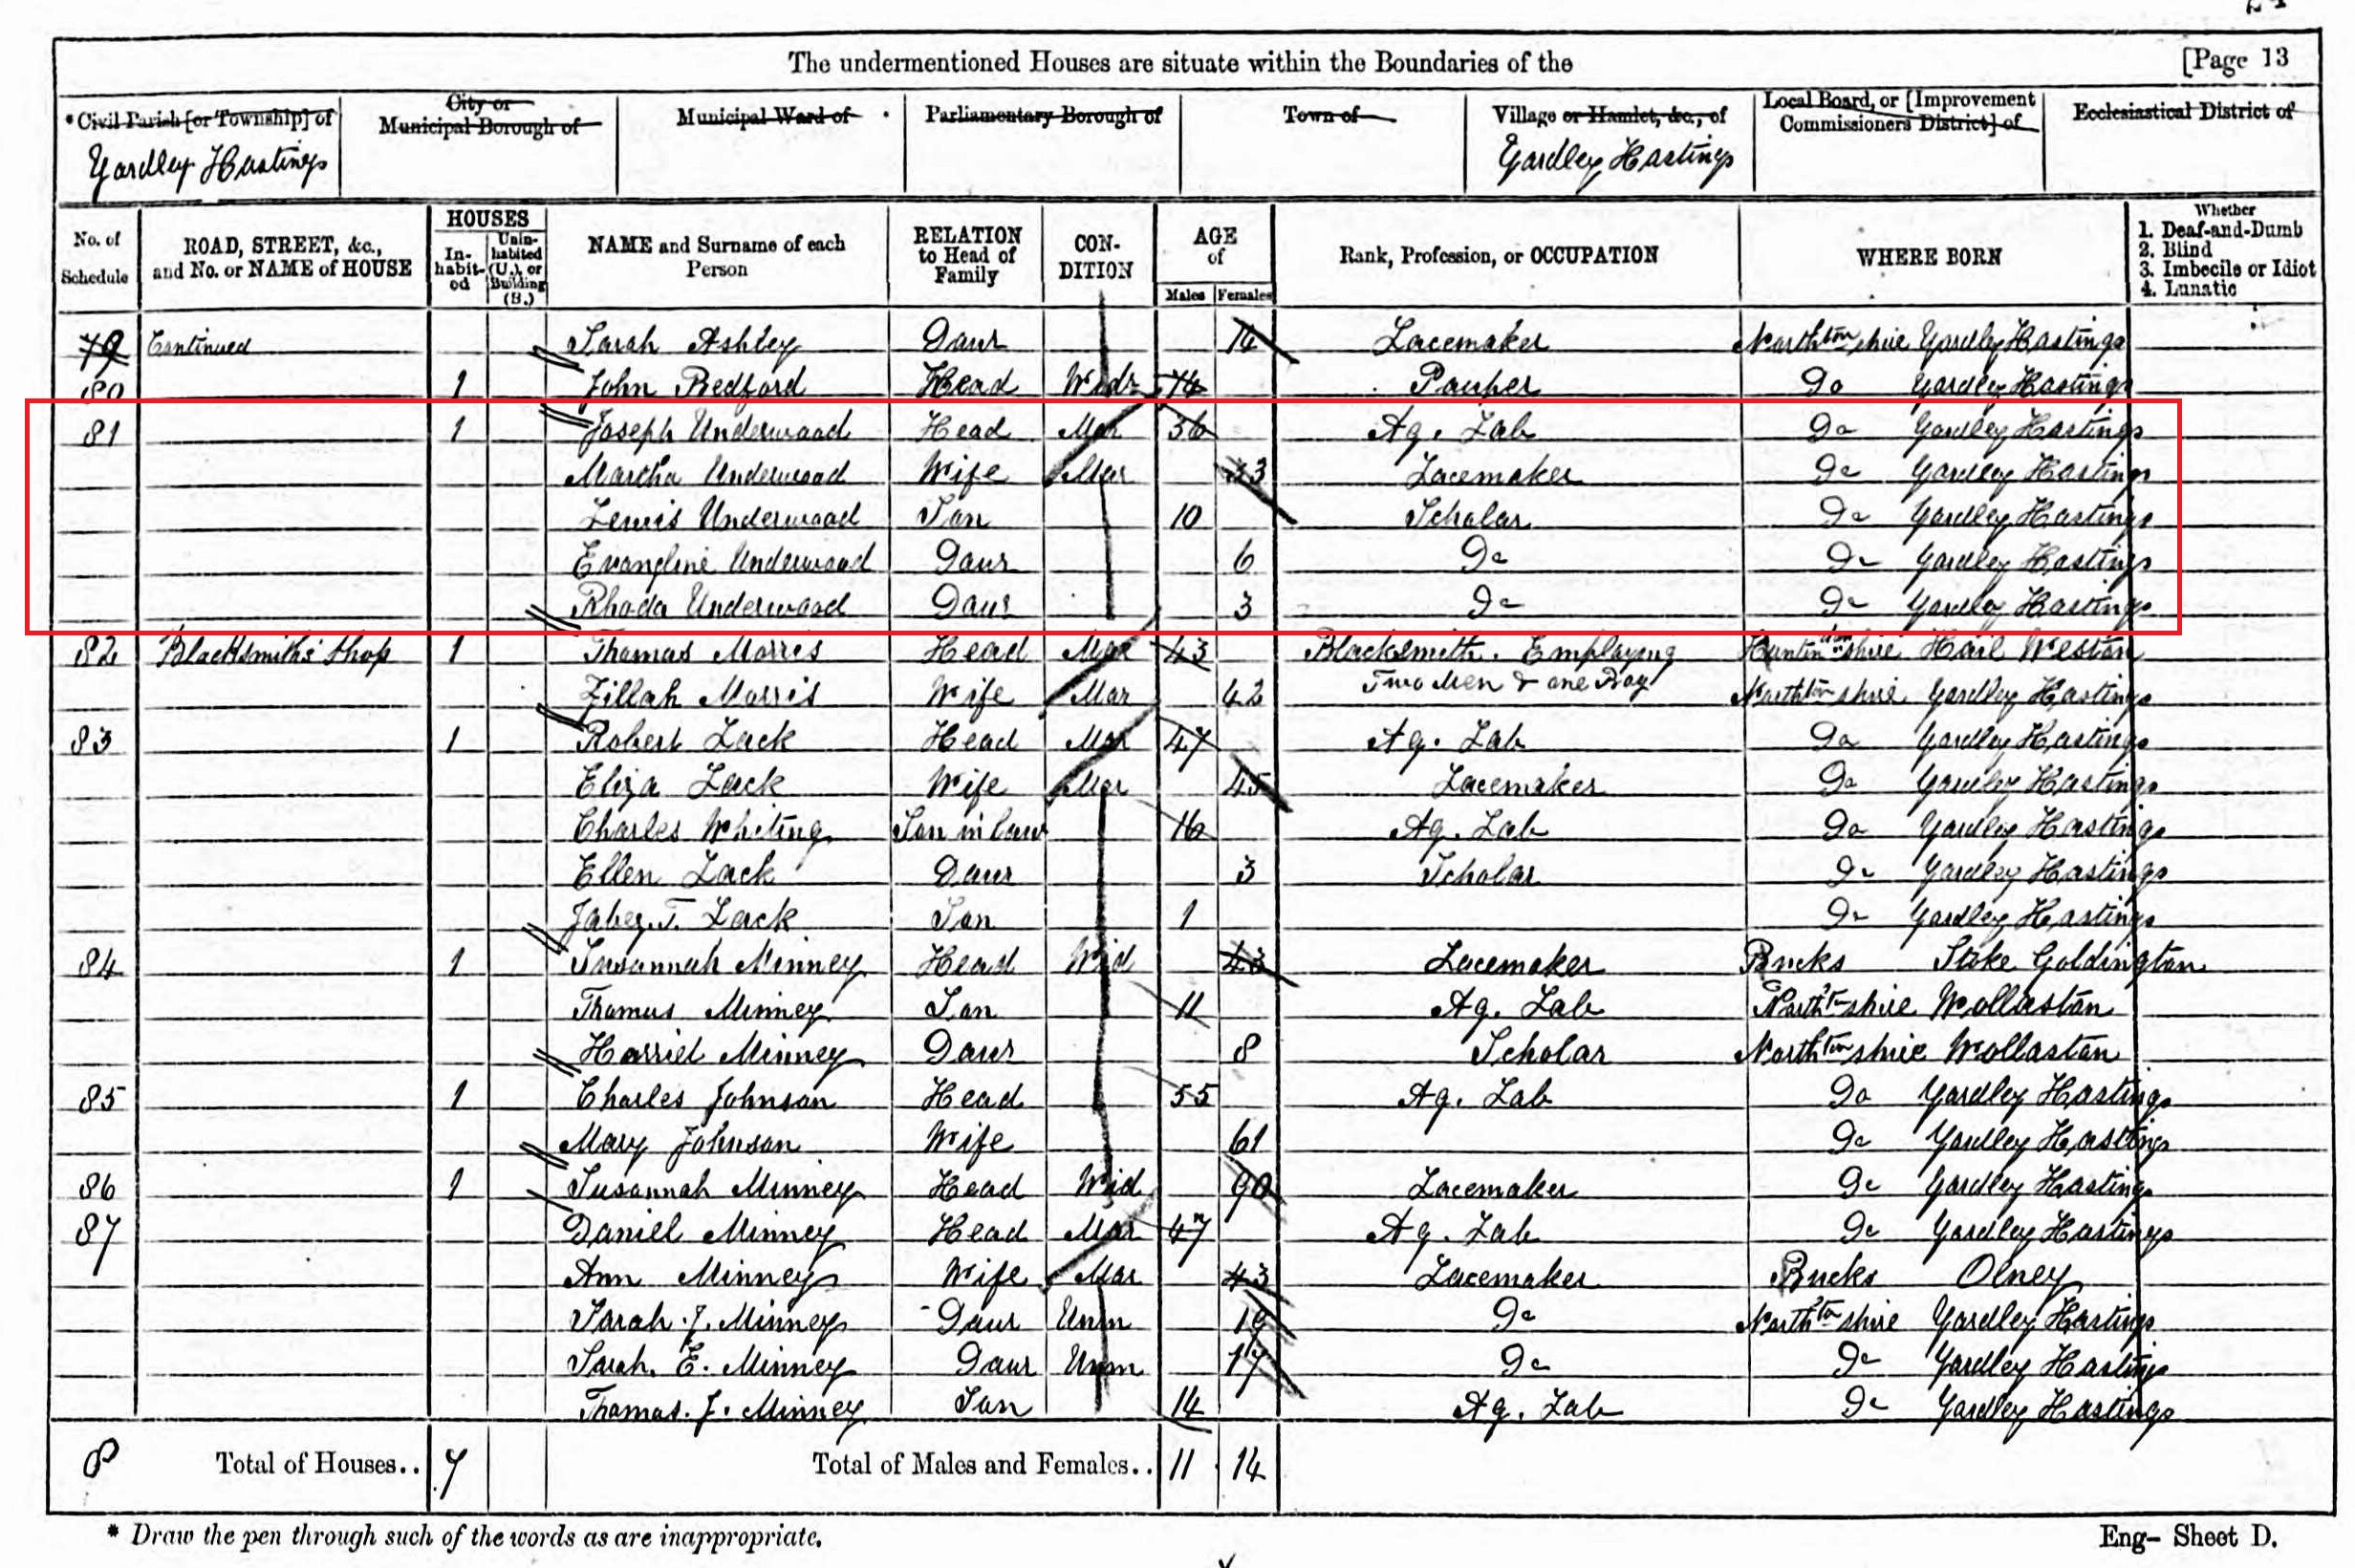 The undermentioned Houses are situate within the Boundaries of the [Page 13
*Civil Parish [or Township] of City or Municipal Borough of Municipal Ward of Parliamentary Borough of Town of Village or Hamlet, &c., of Local Board, or [Improvement Commissioners District] of Ecclesiastical District of
Yardley Hastings Yardley Hastings
No. of Schedule ROAD, STREET, &c., and No. or NAME of HOUSE HOUSES In-habit-ed Unin-habited (U.), or Building (B.) NAME and Surname of each Person RELATION to Head of Family CON-DITION AGE of Males Females Rank, Profession, or OCCUPATION WHERE BORN Whether 1. Deaf-and-Dumb 2. Blind 3. Imbecile or Idiot 4. Lunatic
79 Continued Sarah Ashley Daur 14 Lacemaker Northtonshire Yardley Hastings
80 1 John Bedford Head Widr 74 Pauper Do Yardley Hastings
81 1 Joseph Underwood Head Mar 36 Ag. Lab Do Yardley Hastings
Martha Underwood Wife Mar 43 Lacemaker Do Yardley Hastings
Lewis Underwood Son 10 Scholar Do Yardley Hastings
Evangline Underwood Daur 6 Do Do Yardley Hastings
Rhoda Underwood Daur 3 Do Do Yardley Hastings
82 Blacksmith's Shop 1 Thomas Morris Head Mar 43 Blacksmith. Employing Huntindonshire Hail Weston
Zillah Morris Wife Mar 42 Two Men & one Boy Northtonshire Yardley Hastings
83 1 Robert Lack Head Mar 47 Ag. Lab Do Yardley Hastings
Eliza Lack Wife Mar 45 Lacemaker Do Yardley Hastings
Charles Whiting Son in law 16 Ag. Lab Do Yardley Hastings
Ellen Lack Daur 3 Scholar Do Yardley Hastings
Jabez. T. Lack Son 1 Do Yardley Hastings
84 1 Susannah Minney Head Wid 43 Lacemaker Bucks Stoke Goldington
Thomas Minney Son 11 Ag. Lab Northtnshire Wollaston
Harriet Minney Daur 8 Scholar Northtonshire Wollaston
85 1 Charles Johnson Head 55 Ag. Lab Do Yardley Hastings
Mary Johnson Wife 61 Do Yardley Hastings
86 1 Susannah Minney Head Wid 90 Lacemaker Do Yardley Hastings
87 Daniel Minney Head Mar 47 Ag. Lab Do Yardley Hastings
Ann Minney Wife Mar 43 Lacemaker Bucks Olney
Sarah. J. Minney Daur Unm 19 Do Northtonshire Yardley Hastings
Sarah. E. Minney Daur Unm 17 Do Do Yardley Hastings
Thomas. J. Minney Son 14 Ag. Lab Do Yardley Hastings
8 Total of Houses.. 7 Total of Males and Females.. 11 14
* Draw the pen through such of the words as are inappropriate. Eng- Sheet D.